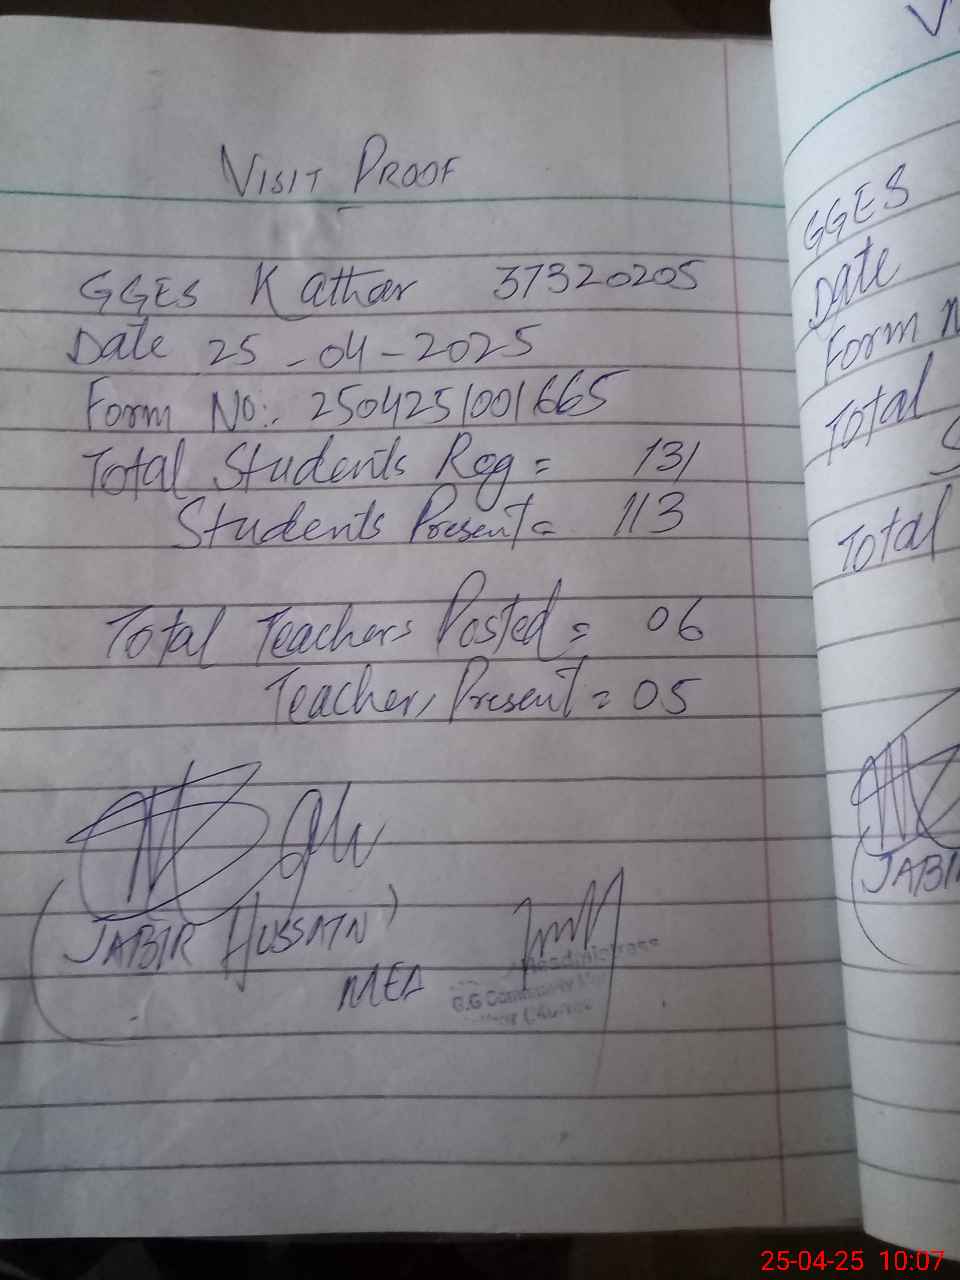 VISIT PROOF
GGES Kathar 37320205
Date 25-04-2025
Form No:. 2504251001665
Total Students Reg = 131
Students Present = 113
Total Teachers Posted = 06
Teachers Present = 05
(JABIR HUSSAIN)
MEA
Headmistress
G.G Community
V
GGES
Date
Form N
Total
S
Total
JABI
25-04-25 10:07